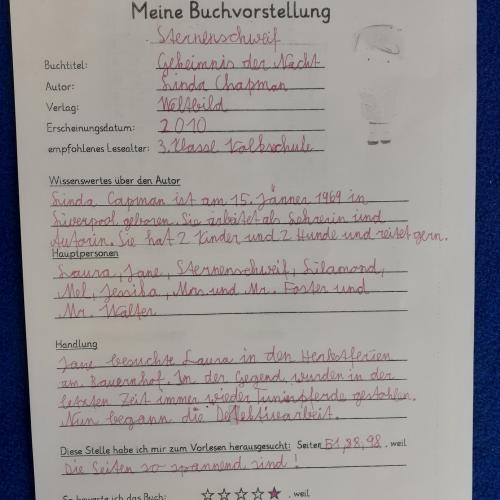 Meine Buchvorstellung
Sternenschweif
Buchtitel: Geheimnis der Nacht
Autor: Linda Chapman
Verlag: Weltbild
Erscheinungsdatum: 2010
empfohlenes Lesealter: 3. Klasse Volksschule
Wissenswertes über den Autor
Linda Capman ist am 15. Jänner 1969 in
Liverpool geboren. Sie arbeitet als Lehrerin und
Autorin. Sie hat 2 Kinder und 2 Hunde und reitet gern.
Hauptpersonen
Laura, Jane, Sternenschweif, Silamond,
Mel, Jessika, Mrs und Mr. Foster und
Mr. Walter
Handlung
Jane besuchte Laura in den Herbstferien
am Bauernhof. In der Gegend wurden in der
letzten Zeit immer wieder Turnierpferde gestohlen.
Nun begann die Detektivarbeit.
Diese Stelle habe ich mir zum Vorlesen herausgesucht: Seiten 51,88,98, weil
die Seiten so spannend sind!
So bewerte ich das Buch: ☆☆☆☆★, weil